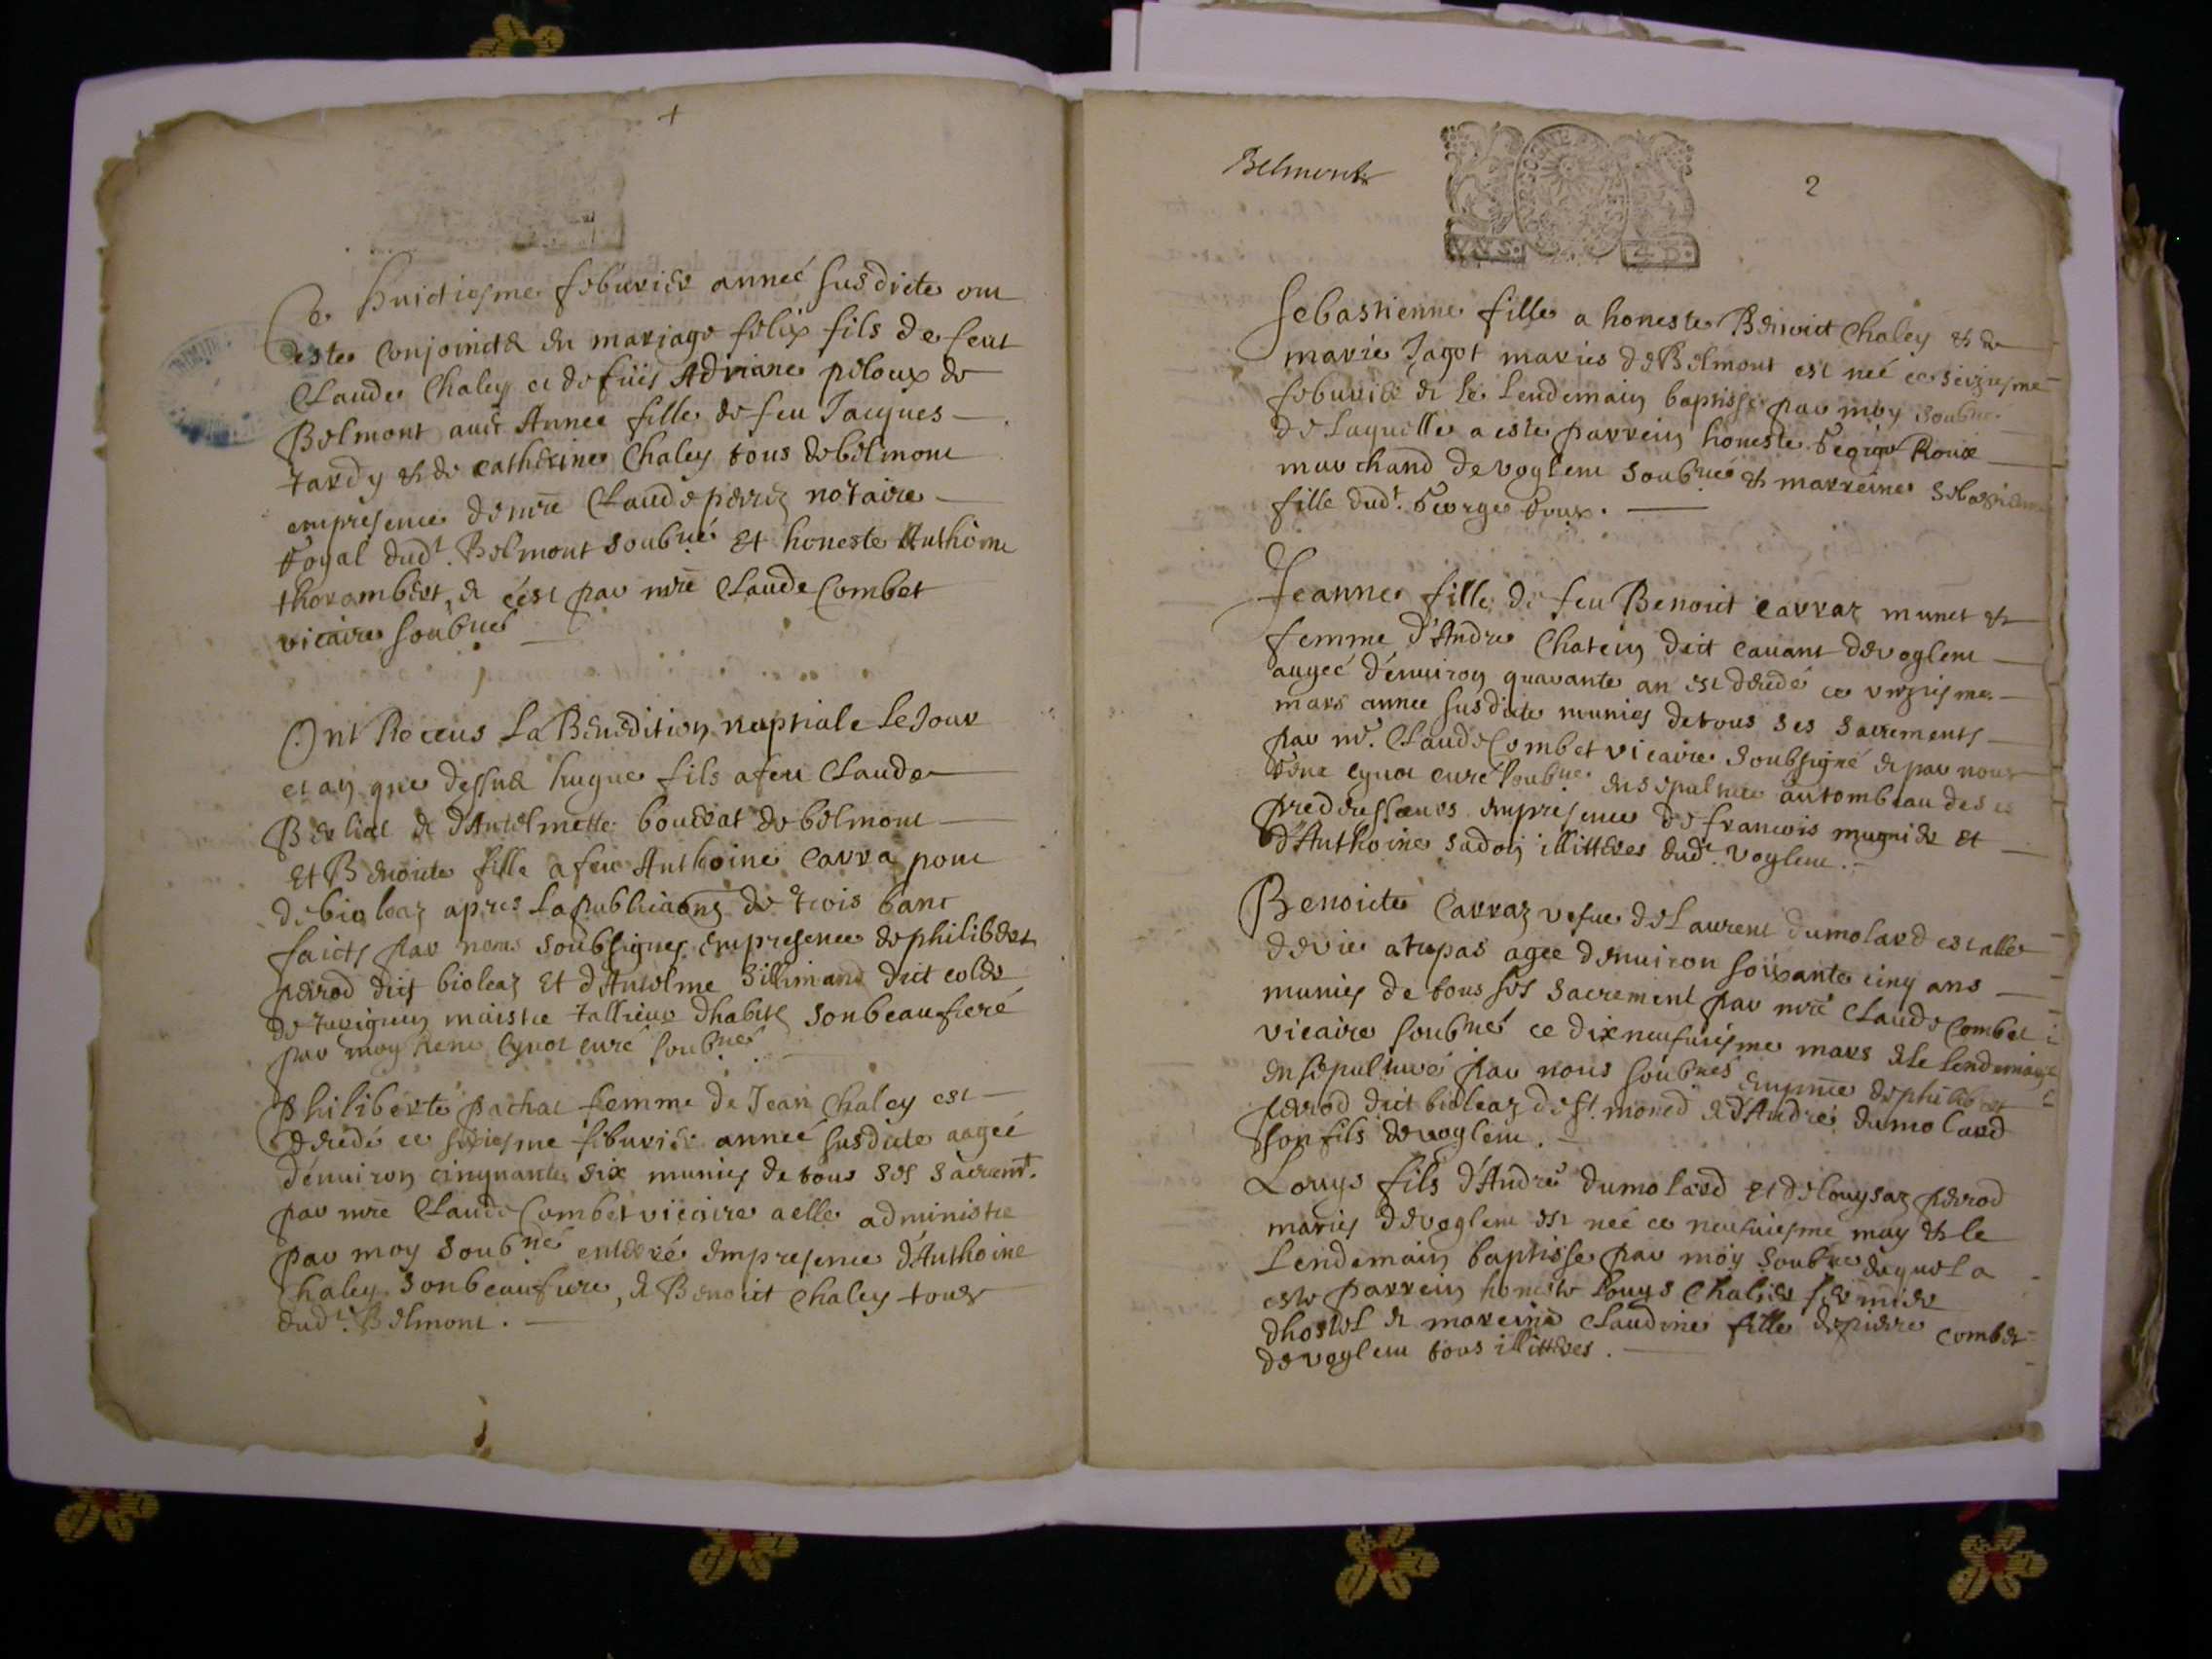 Ce huictiesme febvrier anneé susdicte ont
esté conjoincts en mariage felix fils de feut
Claude Chaley et de fuë Adriane peloux de
Belmont avec Annee fille de feu Jacques
tardy et de catherine Chaley tous de belmont
en presence de mre Claude perrez notaire
Royal dudt. Belmont soubné Et honeste Anthoine
thorambert, et c'est par mre Claude Combet
vicaire soubné
Ont Receus La Benedition nuptiale Le Jour
et an que dessus hugue fils a feu Claude
Berliet et d'Antelmette boudrat de belmont
Et Benoite fille a feu Anthoine Carra pont
de bioleaz apres La publicaōn de trois banc
faicts par nous soubsignes en presence de philibert
perrod dict bioleaz Et d'Antelme Sillimand dict colet
de Juvignin maistre tallieur dhabits son beaufreré
par moy Rene Cynot curé soubné
Philiberte pachat femme de Jean Chaley est
decedé ce sixiesme febvrier anneé susdicte aageé
d'environ cinquante six munies de tous ses sacremt.
par mre Claude Combet vicaire a elle administre
par moy soubné enterré en presence d'Anthoine
Chaley son beaufrere, et Benoict Chaley tous
dudt. Belmont.
Belmont
2
VII S. 4 D.
Sebastienne fille a honeste Benoict Chaley et de
marie Jagot maries de Belmont est neé ce seiziesme
febvrier et le lendemain baptisse par moy soubné
de Laquelle a esté parrein honeste George Roux
marchand de voglem soubné et marreine Sebastienne
fille dudt. George Roux.
Jeanne fille de feu Benoict Carraz munet et
femme d'Andre Chatein dict cavant de voglem
aageé d'environ quarante an est decedé ce
mars annee susdicte munies de tous ses sacrements
par mr. Claude Combet vicaire soubsigné et par nous
Rene Cynot curé soubné ensepulturé au tombeau de ses
predecesseurs en presence de francois mugnier Et
d'Anthoine sadon illitteres dudt. voglem.
Benoicte Carraz vefve de Laurent dumolard est alle
de vie a trepas agee d'environ soixante cinq ans
munies de tous ses sacrement par mre Claude Combet
vicaire soubné ce dixneufviesme mars et le lendemain
ensepulturé par nous soubnés en pnce de philibert
perrod dict bioleaz de st. et d'André dumolard
son fils de voglem.
Louys fils d'André dumolard et de louysaz perrod
maries de voglem est neé ce neufviesme may et le
lendemain baptisse par moy soubné duquel a
esté parrein honeste Louys Chalier fermier
dhostel et mareine Claudine fille de pierre combet
de voglem tous illitteres.